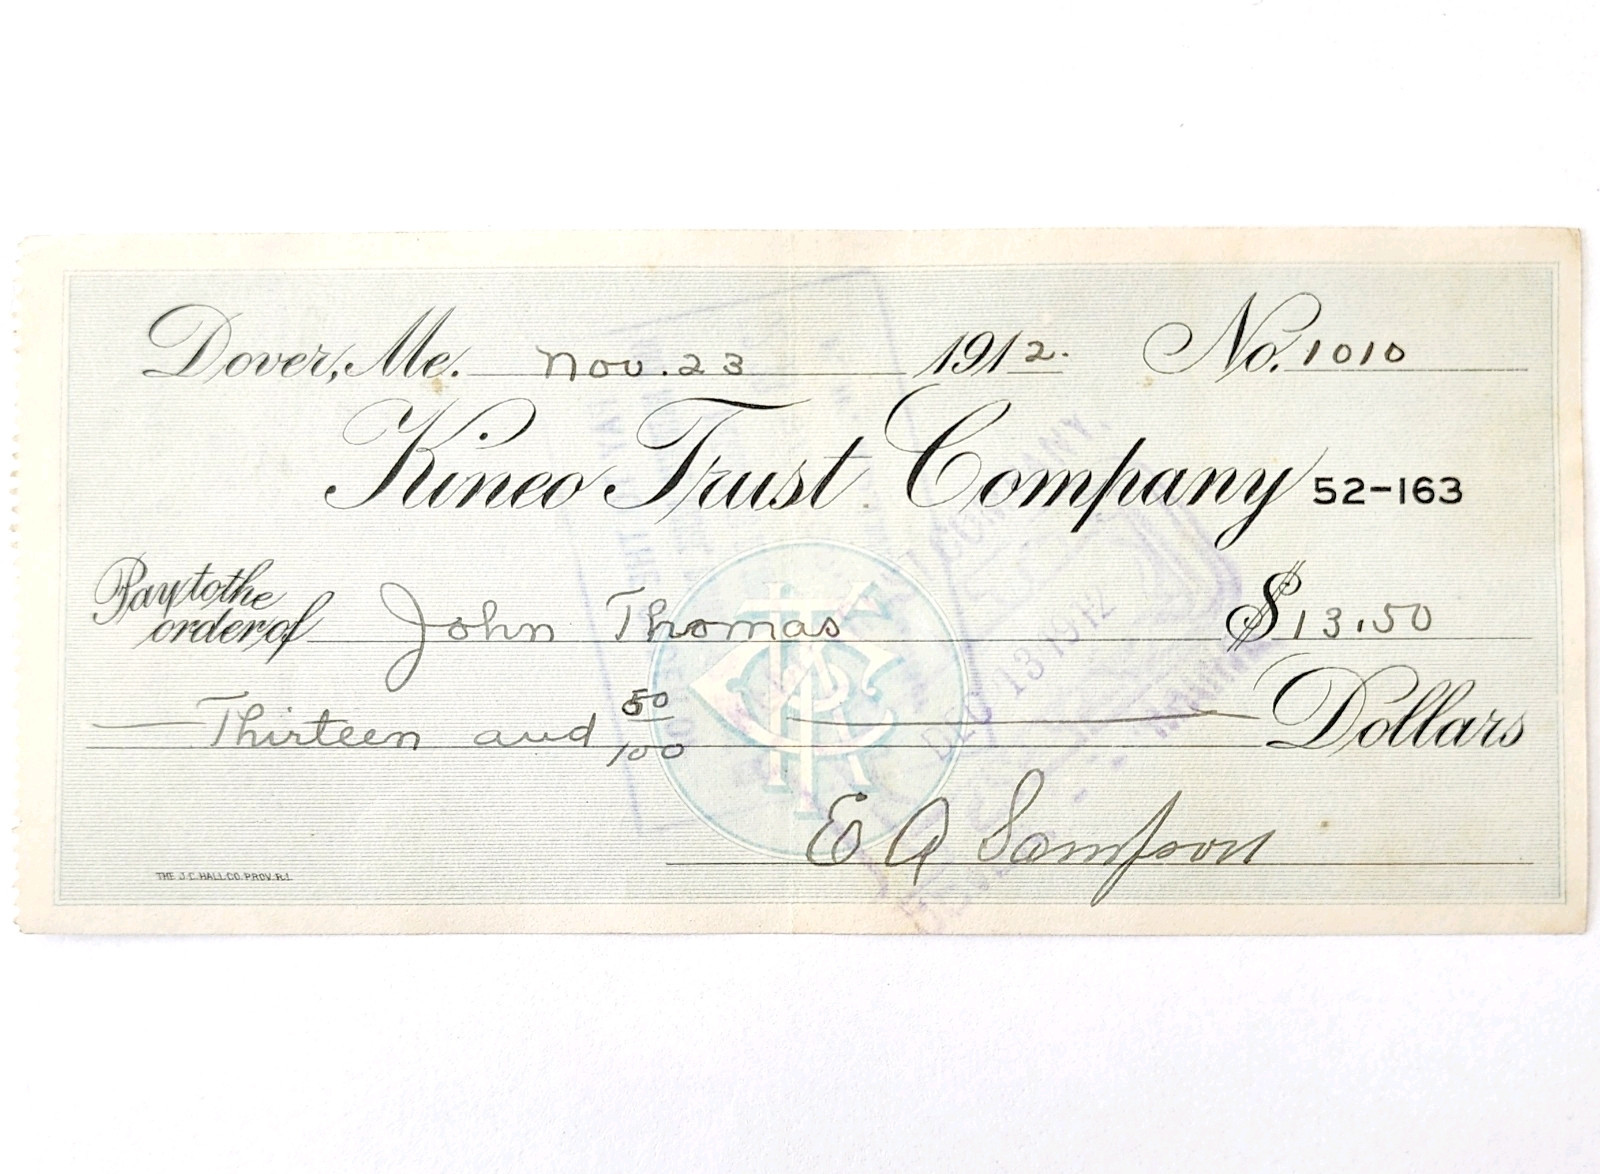 Dover, Me. Nov. 23 1912. No. 1010
Kineo Trust Company 52-163
Pay to the
order of John Thomas $13.50
Thirteen and 50/100 Dollars
E A Sampson
THE J.C. HALL CO. PROV. R.I.
COMPANY
DEC 13 1912